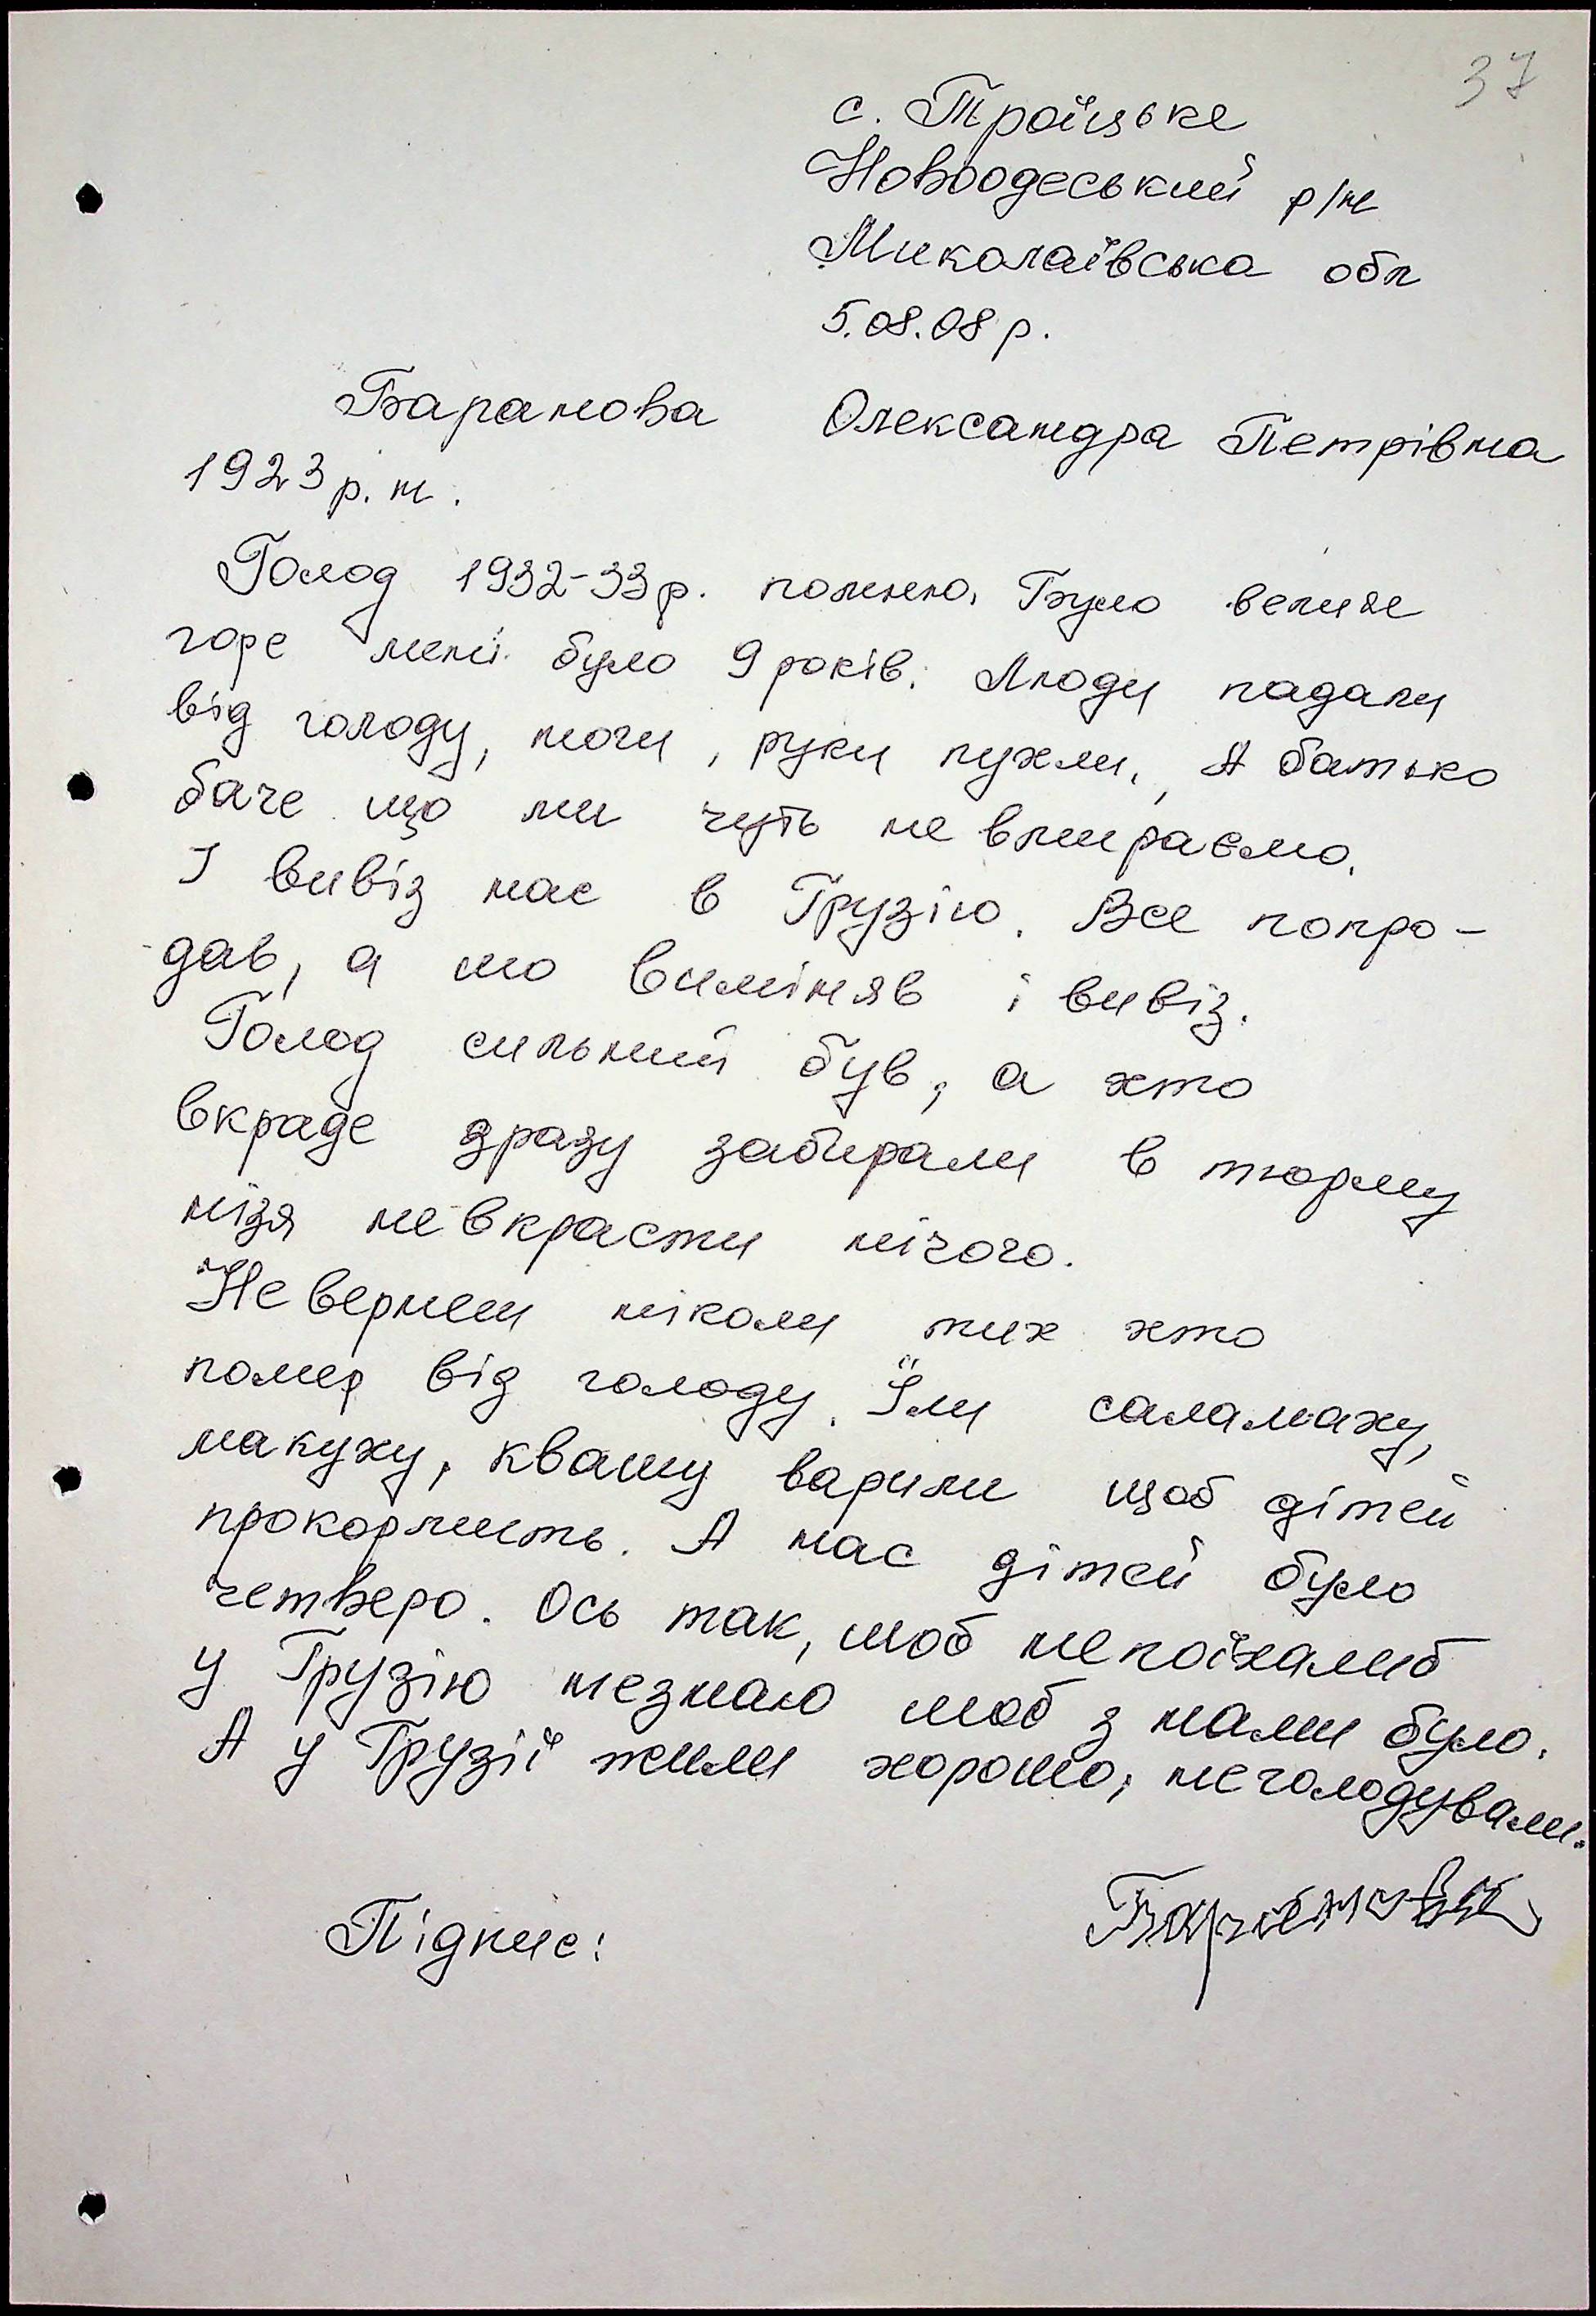 37
с. Троїцьке
Новоодеський р/н
Миколаївська обл
5.08.08 р.
Баранова Олександра Петрівна
1923 р. н.
Голод 1932-33 р. помню. Було велике
горе мені було 9 років. Люди падали
від голоду, ноги, руки пухли, А батько
баче що ми чуть не вмираємо.
І вивіз нас в Грузію. Все попро-
дав, а шо виміняв і вивіз.
Голод сильний був, а хто
вкраде зразу забирали в тюрму
нізя невкрасти нічого.
Невернеш ніколи тих хто
помер від голоду. Їли саламаху,
макуху, квашу варили щоб дітей
прокормить. А нас дітей було
четверо. Ось так, шоб непоїхалиб
у Грузію незнаю шоб з нами було.
А у Грузії жили хорошо, неголодували.
Підпис: Баранова